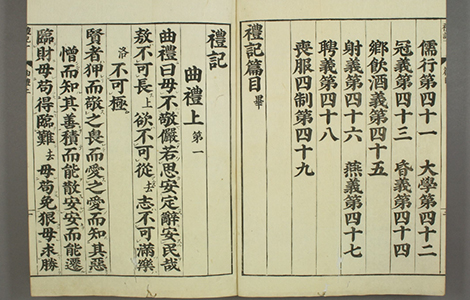 儒行第四十一　大學第四十二
冠義第四十三　昏義第四十四
鄉飲酒義第四十五
射義第四十六　燕義第四十七
聘義第四十八
喪服四制第四十九
禮記篇目 畢
禮記
曲禮上 第一
曲禮曰毋不敬儼若思安定辭安民哉
敖不可長 上 欲不可從 去 志不可滿樂
洛 不可極
賢者狎而敬之畏而愛之愛而知其惡
憎而知其善積而能散安安而能遷
臨財毋苟得臨難 去 毋苟免狠毋求勝